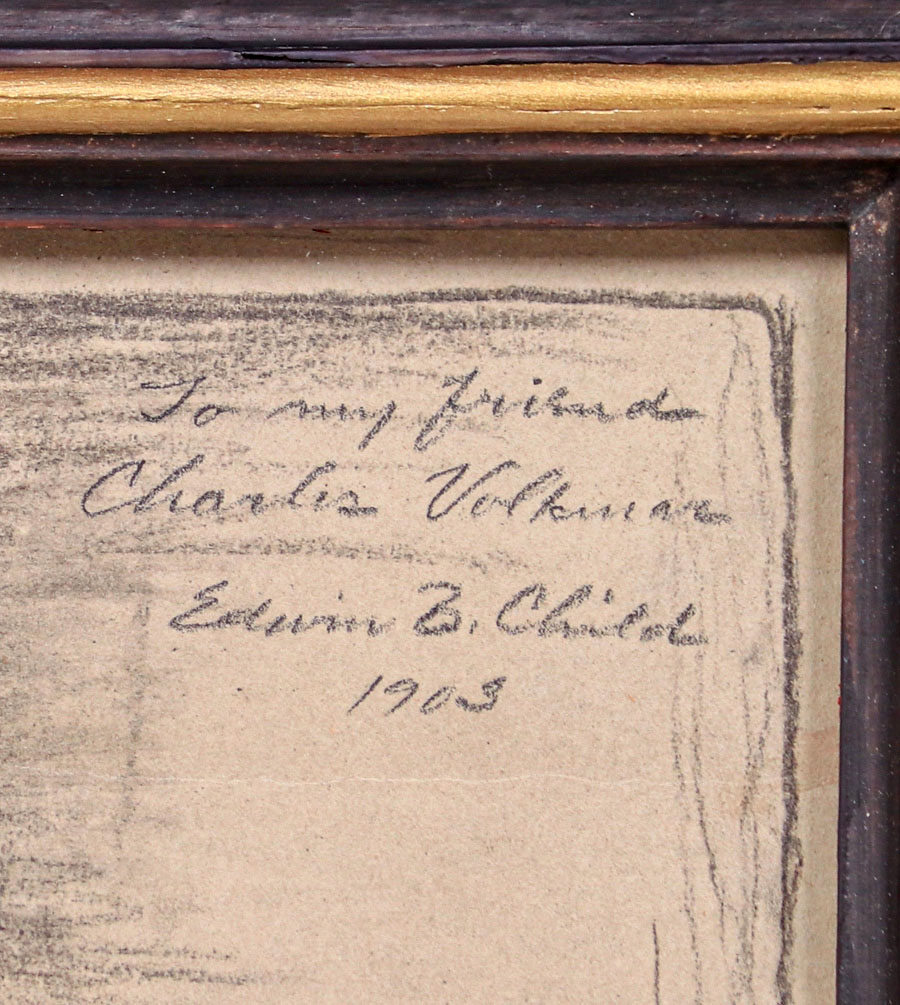 To my friend
Charles Volkmar
Edwin B. Child
1903